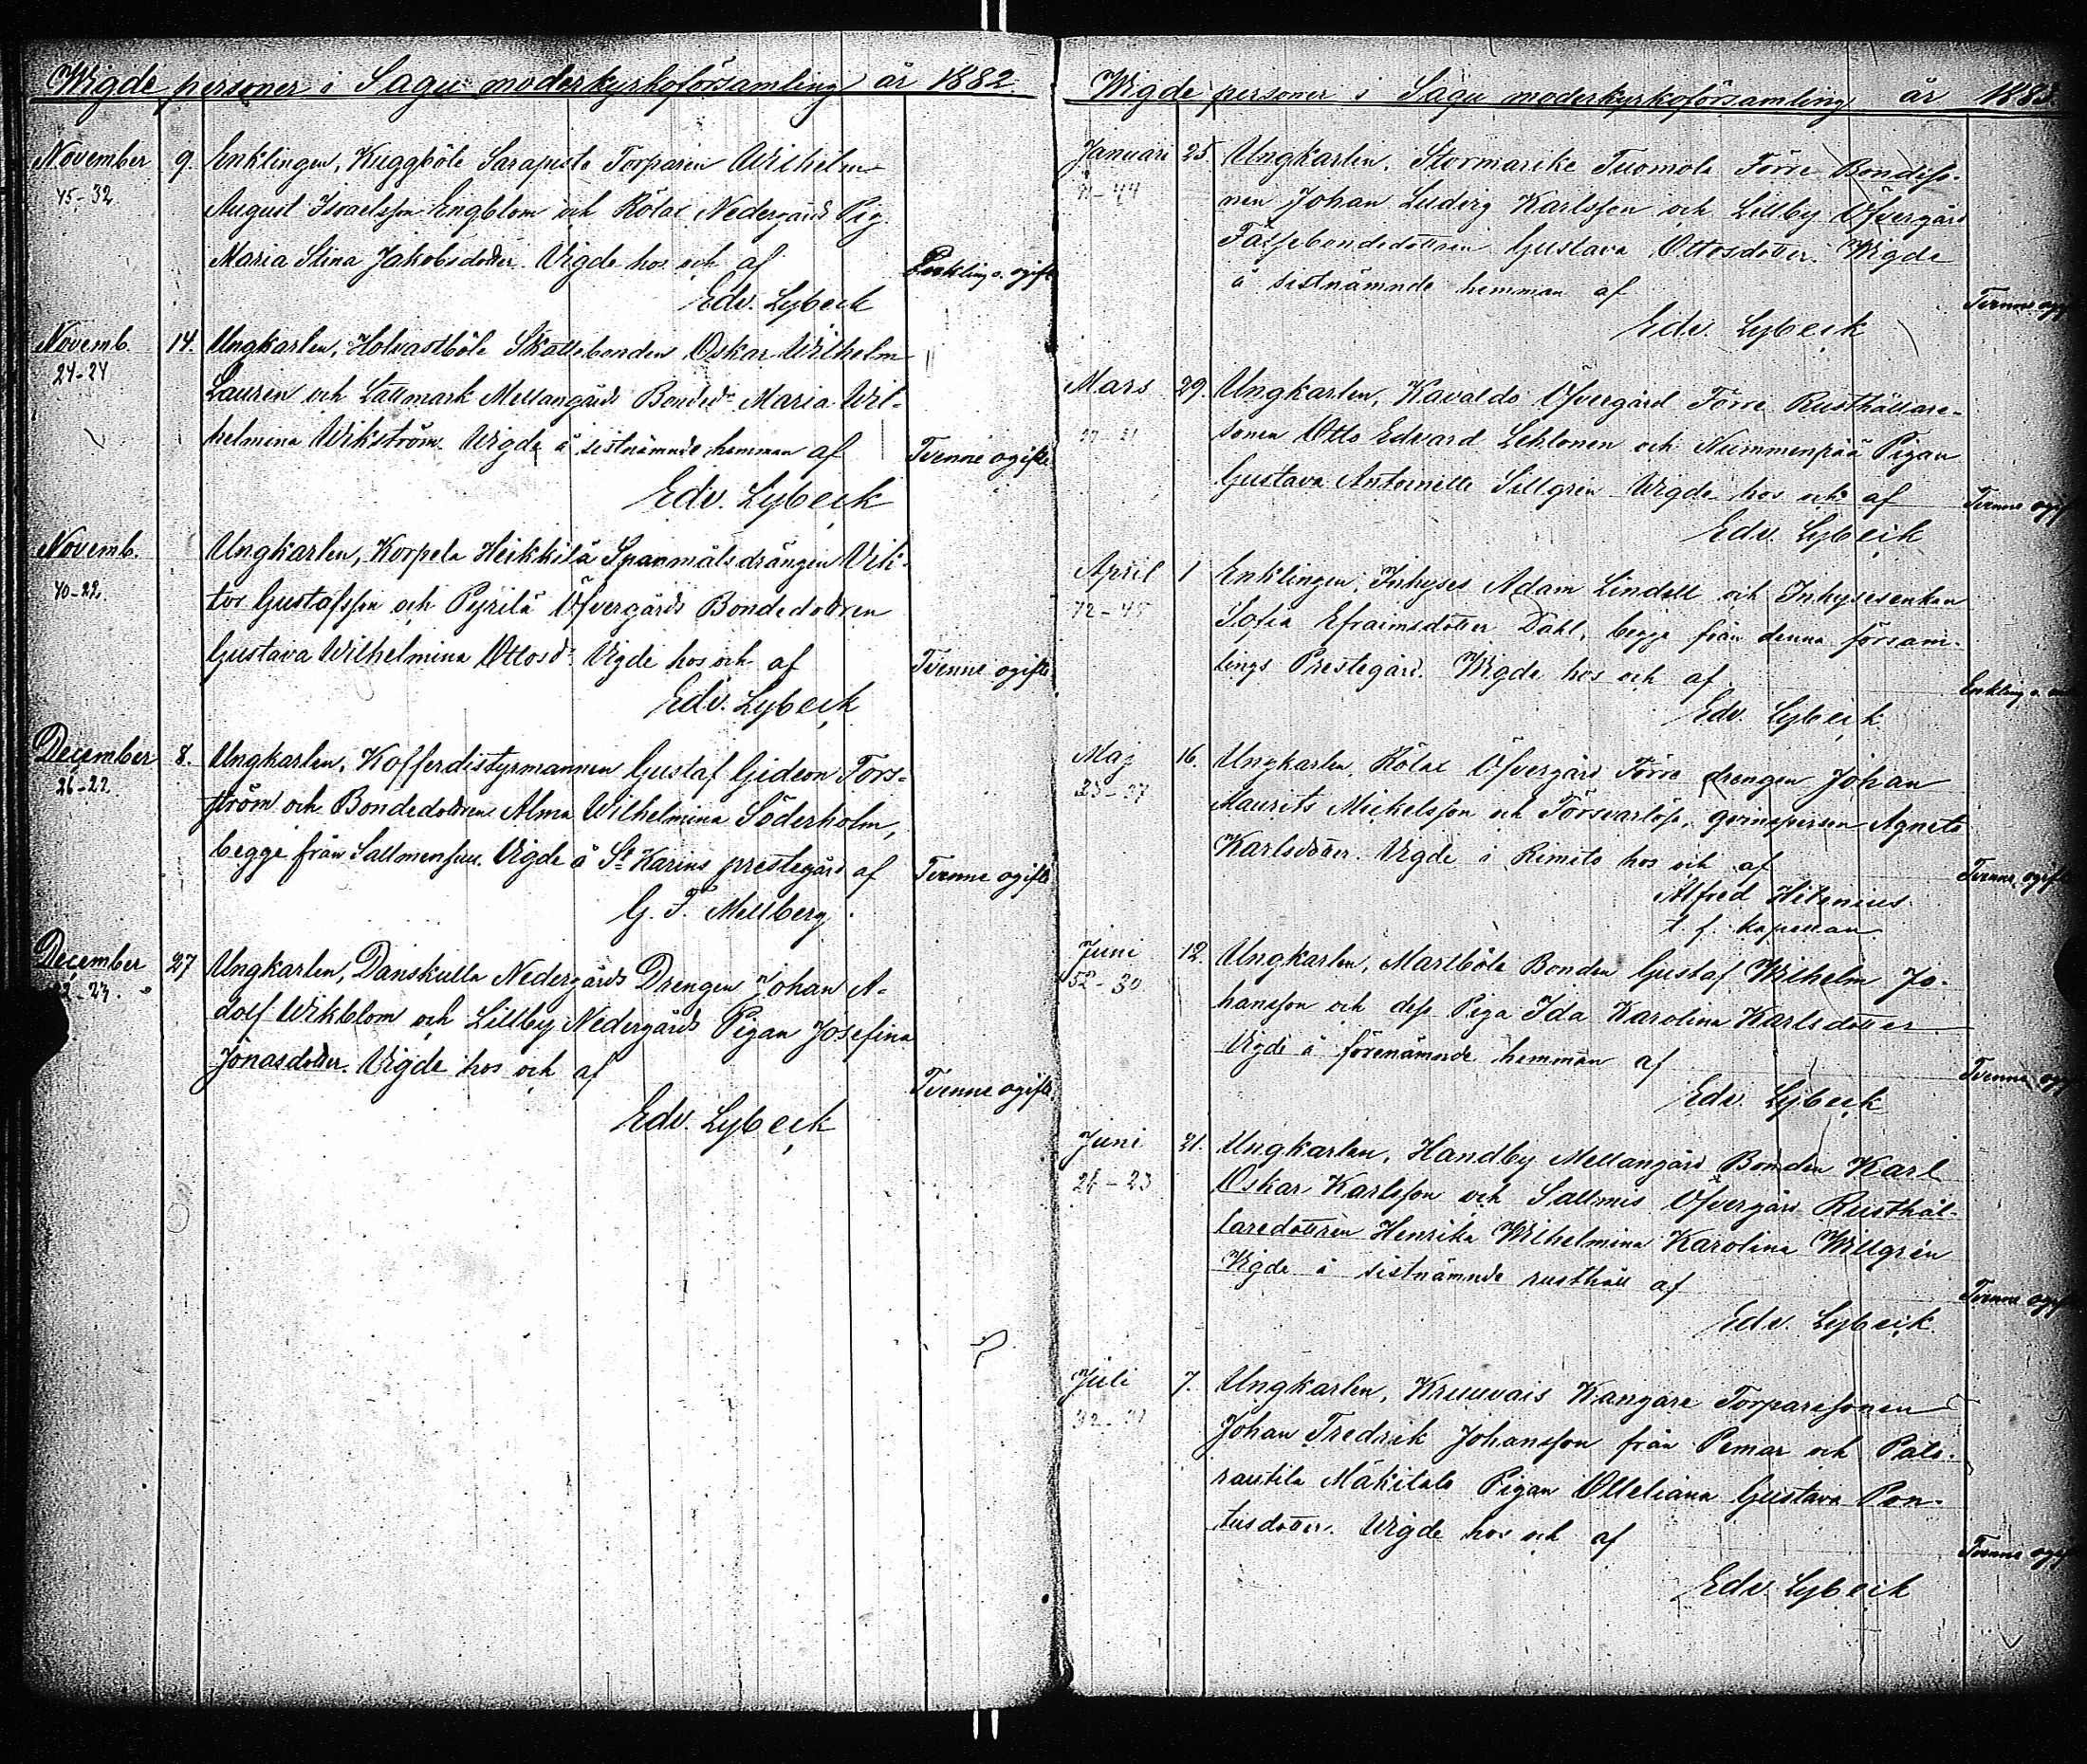 Wigde personer i Sagu moderkyrkoförsamling år 1882.
November 9. Enklingen, Kuggböle Sarapisto Torparen Wilhelm
45-32 August Israelsson Engblom och Rölax Nedergårds Pig.
Maria Stina Jakobsdotter. Vigde hos och af Enkling o. ogift
Edv. Lybeck
Novemb. 14. Ungkarlen, Holvastböle Skattebonden Oskar Wilhelm
24-24 Lauren och Lättmark Mellangårds Bonded:r Maria Wil-
helmina Wikström. Vigde å sistnämnde hemman af Tvenne ogifte
Edv. Lybeck
Novemb. Ungkarlen, Korpela Heikkilä Spanmålsdrängen Vik-
40-29. tor Gustafsson och Pyrilä Öfvergårds Bondedottren
Gustava Wilhelmina Ottosd:r Vigde hos och af Tvenne ogifte
Edv. Lybeck
December 8. Ungkarlen, Kofferdistyrmannen Gustaf Gideon Tors-
26-22. ström och Bondedottren Alma Wilhelmina Söderholm,
begge från Sallmensuu. Vigde å S:t Karins prestegård af Tvenne ogifte
G. F. Mellberg.
December 27 Ungkarlen, Danskulla Nedergårds Drengen Johan A-
-23. dolf Wikblom och Lillby Nedergårds Pigan Josefina
Jonasdotter. Vigde hos och af Tvenne ogifte
Edv. Lybeck
Wigde personer i Sagu moderkyrkoförsamling år 1883.
Januari 25. Ungkarlen, Stormarike Tuomola Förre Bondeso-
-44 nen Johan Ludvig Karlsson och Lillby Öfvergårds
Fästebondedottren Gustava Ottosdotter. Wigde
å sistnämnde hemman af Tvenne ogif
Edv. Lybeck
Mars 29. Ungkarlen, Kavaldo Öfvergård Förre Rusthållare-
sonen Otto Edvard Lehtonen och Nummenpää Pigan
Gustava Antoinette Sillgrén. Wigde hos och af Tvenne ogif
Edv. Lybeck
April 1 Enklingen, Inhyses Adam Lindell och Inhysesenkan
72-45 Sofia Efraimsdotter Dahl, begge från denna försam-
lings Prestegård. Wigde hos och af Enkling o. en
Edv. Lybeck
Maj 16. Ungkarlen, Rölax Öfvergård Förre drengen Johan
-37 Maurits Mickelsson och Försvarlöse qvinsperson Agneta
Karlsdotter. Vigde i Rimito hos och af Tvenne ogift
Alfred Hitonius
t. f. kapellan.
Juni 12. Ungkarlen, Marlböle Bonden Gustaf Wilhelm Jo-
52-30 hansson och dess Piga Ida Karolina Karlsdotter
Vigde å förenämnde hemman af Tvenne og
Edv. Lybeck
Juni 21. Ungkarlen, Handby Mellangård Bonden Karl
24-23 Oskar Karlsson och Sallmis Öfvergård Rusthål-
laredottren Henrika Wilhelmina Karolina Willgrén
Vigde å sistnämnde rusthåll af Tvenne ogif
Edv. Lybeck
Juli 7. Ungkarlen, Kruuvais Kangare Torparesonen
Johan Fredrik Johansson från Pemar och Palo-
rautila Mäkitalo Pigan Otteliana Gustava Pon-
tusdotter. Vigde hos och af Tvenne ogif
Edv. Lybeck